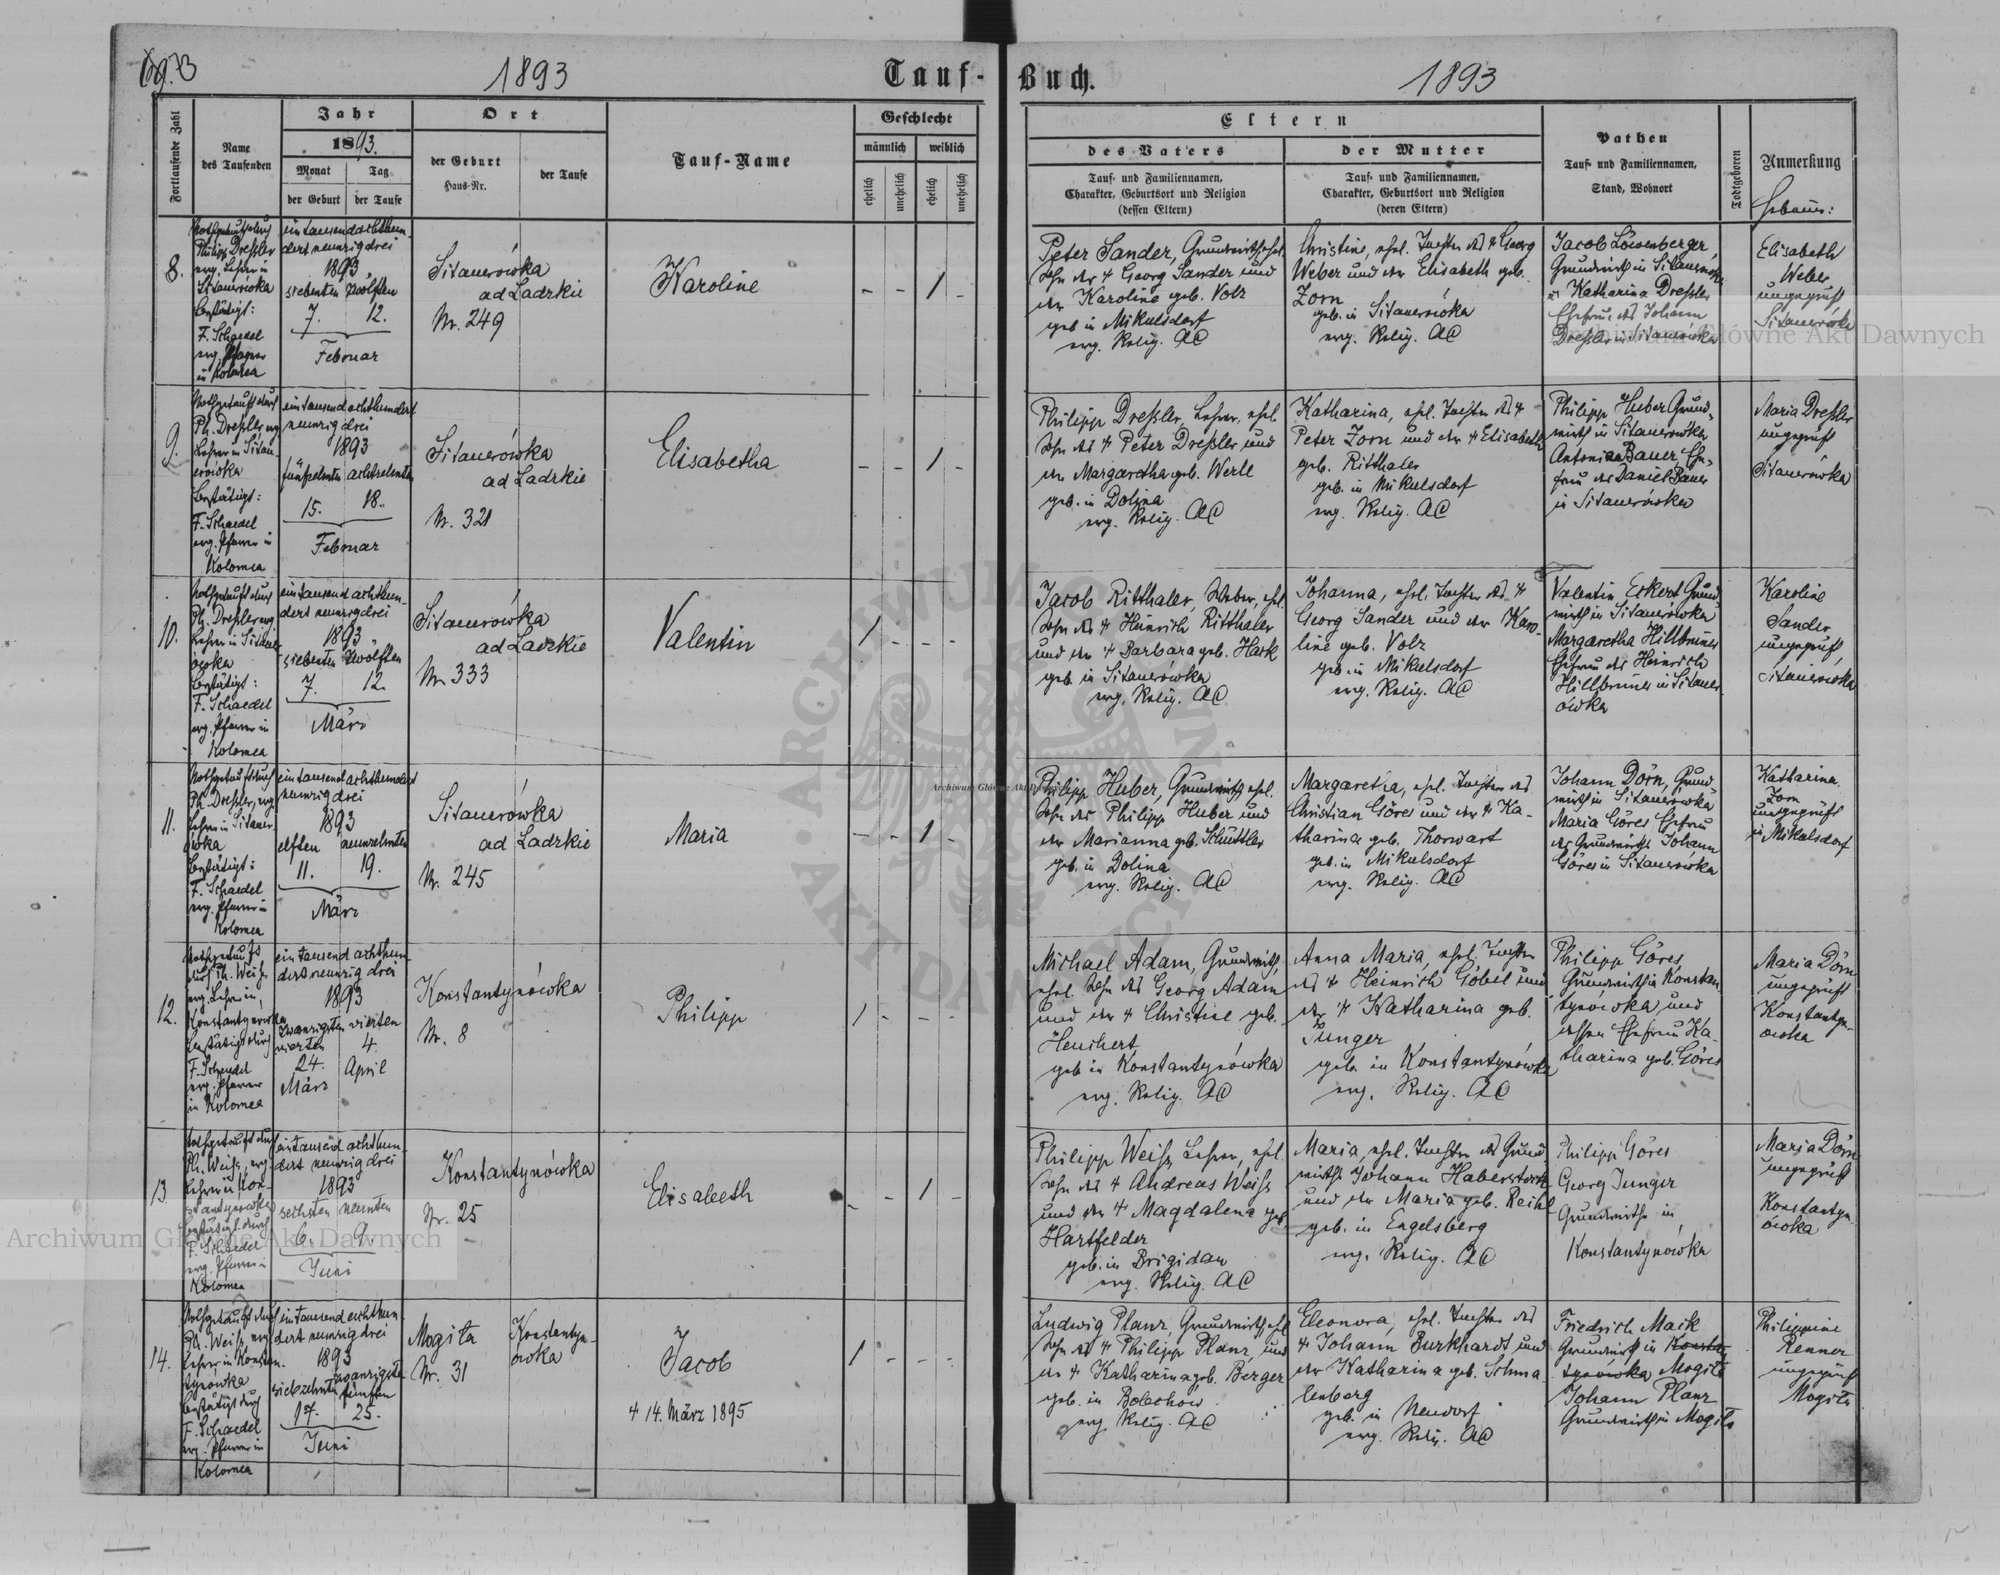 1893
Tauf-Buch.
1893
Fortlaufende Zahl
Name
des Taufenden
Jahr
1893.
Monat
Tag
der Geburt
der Taufe
Ort
der Geburt
Haus-Nr.
der Taufe
Tauf-Name
Geschlecht
männlich
weiblich
ehelich
unehelich
ehelich
unehelich
Eltern
des Vaters
Tauf- und Familiennamen,
Charakter, Geburtsort und Religion
(dessen Eltern)
der Mutter
Tauf- und Familiennamen,
Charakter, Geburtsort und Religion
(deren Eltern)
Pathen
Tauf- und Familiennamen,
Stand, Wohnort
Todtgeboren
Anmerkung
8.
Nothgetauft durch
Philipp Dreßler
evg. Lehrer in
Sitauerówka
Bestätigt:
F. Schaedel
evg. Pfarrer
in Kolomea
eintausendachthun-
dert neunzigdrei
1893
siebenten zwölften
7. 12.
Februar
Sitauerówka
ad Ladzkie
Nr. 249
Karoline
- - 1 -
Peter Sander, Grundwirth, ehel.
Sohn des + Georg Sander und
der Karoline geb. Volz
geb. in Mikulsdorf
evg. Relig. AC
Christine, ehel. Tochter des + Georg
Weber und der Elisabeth geb.
Zorn
geb. in Sitauerówka
evg. Relig. AC
Jacob Löwenberger,
Grundwirth in Sitauerówka
u. Katharina Dreßler
Ehefrau des Johann
Dreßler in Sitauerówka
Elisabeth
Weber
ungeprüft
Sitauerówka
9.
Nothgetauft durch
Ph. Dreßler evg
Lehrer in Sitau-
erówka
Bestätigt:
F. Schaedel
evg. Pfarrer in
Kolomea
eintausend achthundert
neunzig drei
1893
fünfzehnten achtzehnten
15. 18.
Februar
Sitauerówka
ad Ladzkie
Nr. 321
Elisabetha
- - 1 -
Philipp Dreßler, Lehrer, ehel.
Sohn des + Peter Dreßler und
der Margaretha geb. Werle
geb. in Dolina
evg. Relig. AC
Katharina, ehel. Tochter des +
Peter Zorn und der + Elisabeth
geb. Ritthaler
geb. in Mikulsdorf
evg. Relig. AC
Philipp Huber Grund-
wirth in Sitauerówka
Antonia Bauer Ehe-
frau des Daniel Bauer
in Sitauerówka
Maria Dreßler
ungeprüft
Sitauerówka
10.
Nothgetauft durch
Ph. Dreßler evg
Lehrer in Sitauer-
ówka
Bestätigt:
F. Schaedel
evg. Pfarrer in
Kolomea
eintausend achthun-
dert neunzigdrei
1893
siebenten zwölften
7. 12.
März
Sitauerówka
ad Ladzkie
Nr. 333
Valentin
1 - - -
Jacob Ritthaler, Weber, ehel.
Sohn des + Heinrich Ritthaler
und der + Barbara geb. Hark
geb. in Sitauerówka
evg. Relig. AC
Johanna, ehel. Tochter des +
Georg Sander und der Karo-
line geb. Volz
geb. in Mikulsdorf
evg. Relig. AC
Valentin Eckert Grund
wirth in Sitauerówka
Margaretha Hillbruner
Ehefrau des Heinrich
Hillbruner in Sitauer-
ówka
Karoline
Sander
ungeprüft
Sitauerówka
11.
Nothgetauft durch
Ph. Dreßler, evg
Lehrer in Sitauer-
ówka
Bestätigt:
F. Schaedel
evg. Pfarrer in
Kolomea
eintausend achthundert
neunzig drei
1893
elften neunzehnten
11. 19.
März
Sitauerówka
ad Ladzkie
Nr. 245
Maria
- - 1 -
Philipp Huber, Grundwirth, ehel.
Sohn des Philipp Huber und
der Marianna geb. Schüttler
geb. in Dolina
evg. Relig. AC
Margaretha, ehel. Tochter des
Christian Göres und der + Ka-
tharina geb. Thorwart
geb. in Mikulsdorf
evg. Relig. AC
Johann Dörn, Grund-
wirth in Sitauerówka
Maria Göres Ehefrau
des Grundwirths Johann
Göres in Sitauerówka
Katharina
Zorn
ungeprüft
in Mikulsdorf
12.
Nothgetauft
durch Ph. Weiß
evg. Lehrer in
Konstantynówka
bestätigt durch
F. Schaedel
evg. Pfarrer
in Kolomea
eintausend achthun-
dert neunzig drei
1893
zwanzigsten vierten
vierten 4.
24. April
März
Konstantynówka
Nr. 8
Philipp
1 - - -
Michael Adam, Grundwirth
ehel. Sohn des Georg Adam
und der + Christine geb.
Heuchert
geb. in Konstantynówka
evg. Relig. AC
Anna Maria, ehel. Tochter
des + Heinrich Göbel und
der + Katharina geb.
Junger
geb. in Konstantynówka
evg. Relig. AC
Philipp Göres
Grundwirth in Konstan-
tynówka und
dessen Ehefrau Ka-
tharina geb. Göres
Maria Dörn
ungeprüft
Konstantyn-
ówka
13
Nothgetauft durch
Ph. Weiß, evg
Lehrer in Kon-
stantynówka
bestätigt durch
F. Schaedel
evg. Pfarrer in
Kolomea
eintausend achthun-
dert neunzig drei
1893
sechsten neunten
6. 9.
Juni
Konstantynówka
Nr. 25
Elisabeth
- - 1 -
Philipp Weiß, Lehrer, ehel.
Sohn des + Andreas Weiß
und der + Magdalena geb
Hartfelder
geb. in Brigidau
evg. Relig. AC
Maria, ehel. Tochter des Grund-
wirths Johann Haberstock
und der Maria geb. Reichl
geb. in Engelsberg
evg. Relig. AC
Philipp Göres
Georg Junger
Grundwirthe in
Konstantynówka
Maria Dörn
ungeprüft
Konstantyn-
ówka
14.
Nothgetauft durch
Ph. Weiß, evg
Lehrer in Konstan-
tynówka
bestätigt durch
F. Schaedel
evg. Pfarrer in
Kolomea
eintausend achthun-
dert neunzig drei
1893
siebzehnten zwanzigsten
fünften
17. 25.
Juni
Mogiła
Nr. 31
Konstantyn-
ówka
Jacob
+ 14. März 1895
1 - - -
Ludwig Planz, Grundwirth, ehel
Sohn des + Philipp Planz, und
der + Katharina geb. Berger
geb. in Bolechow
evg. Relig. AC
Eleonora, ehel. Tochter des
+ Johann Burkhardt und
der Katharina geb. Schma
lenberg
geb. in Neudorf
evg. Relig. AC
Friedrich Maik
Grundwirth in Konstan
tynówka Mogiła
Johann Planz
Grundwirth in Mogiła
Philippine
Renner
ungeprüft
Mogiła
Archiwum Główne Akt Dawnych
Archiwum Główne Akt Dawnych
Archiwum Główne Akt Dawnych